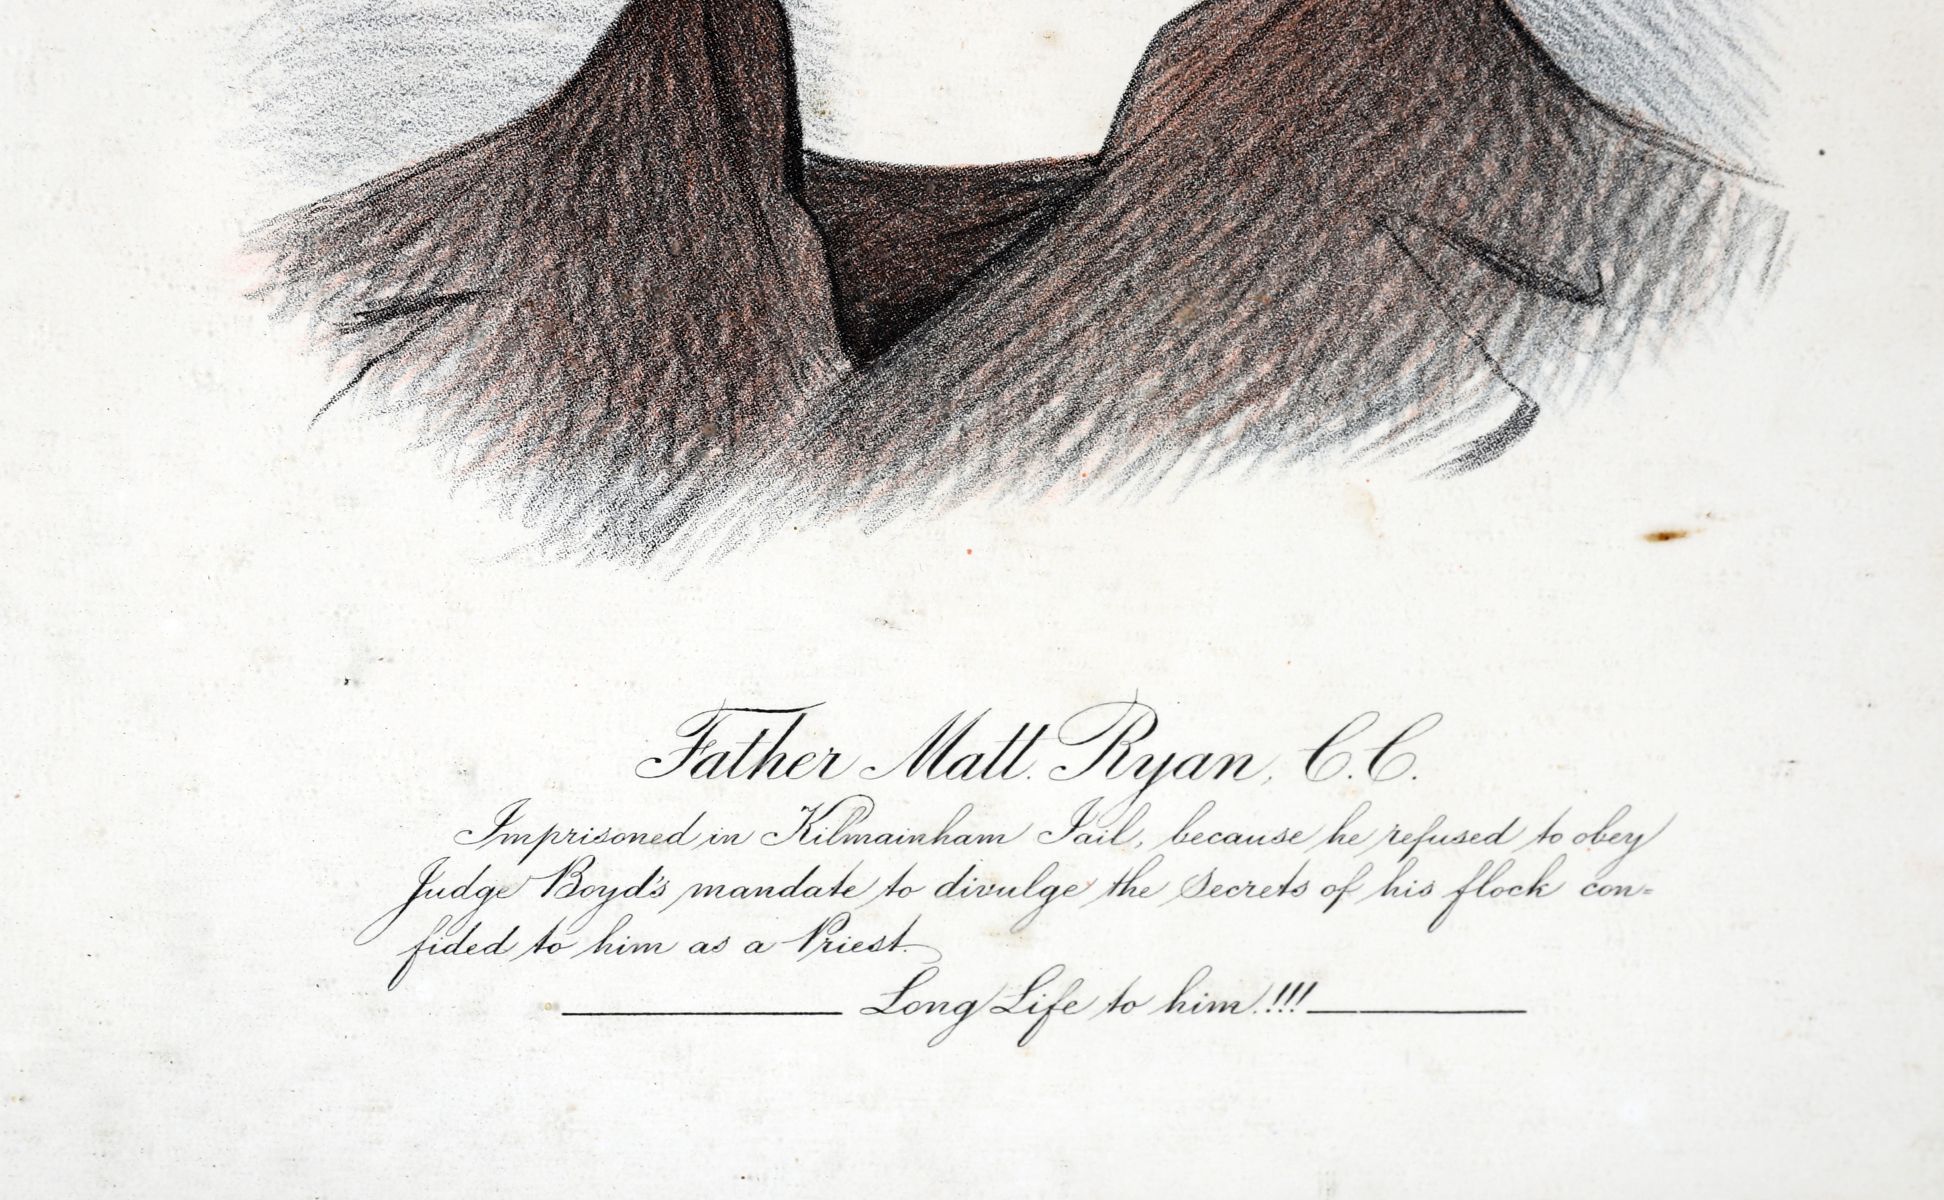 Father Matt. Ryan, C.C.
Imprisoned in Kilmainham Jail, because he refused to obey
Judge Boyd's mandate to divulge the Secrets of his flock con=
fided to him as a Priest.
Long Life to him!!!